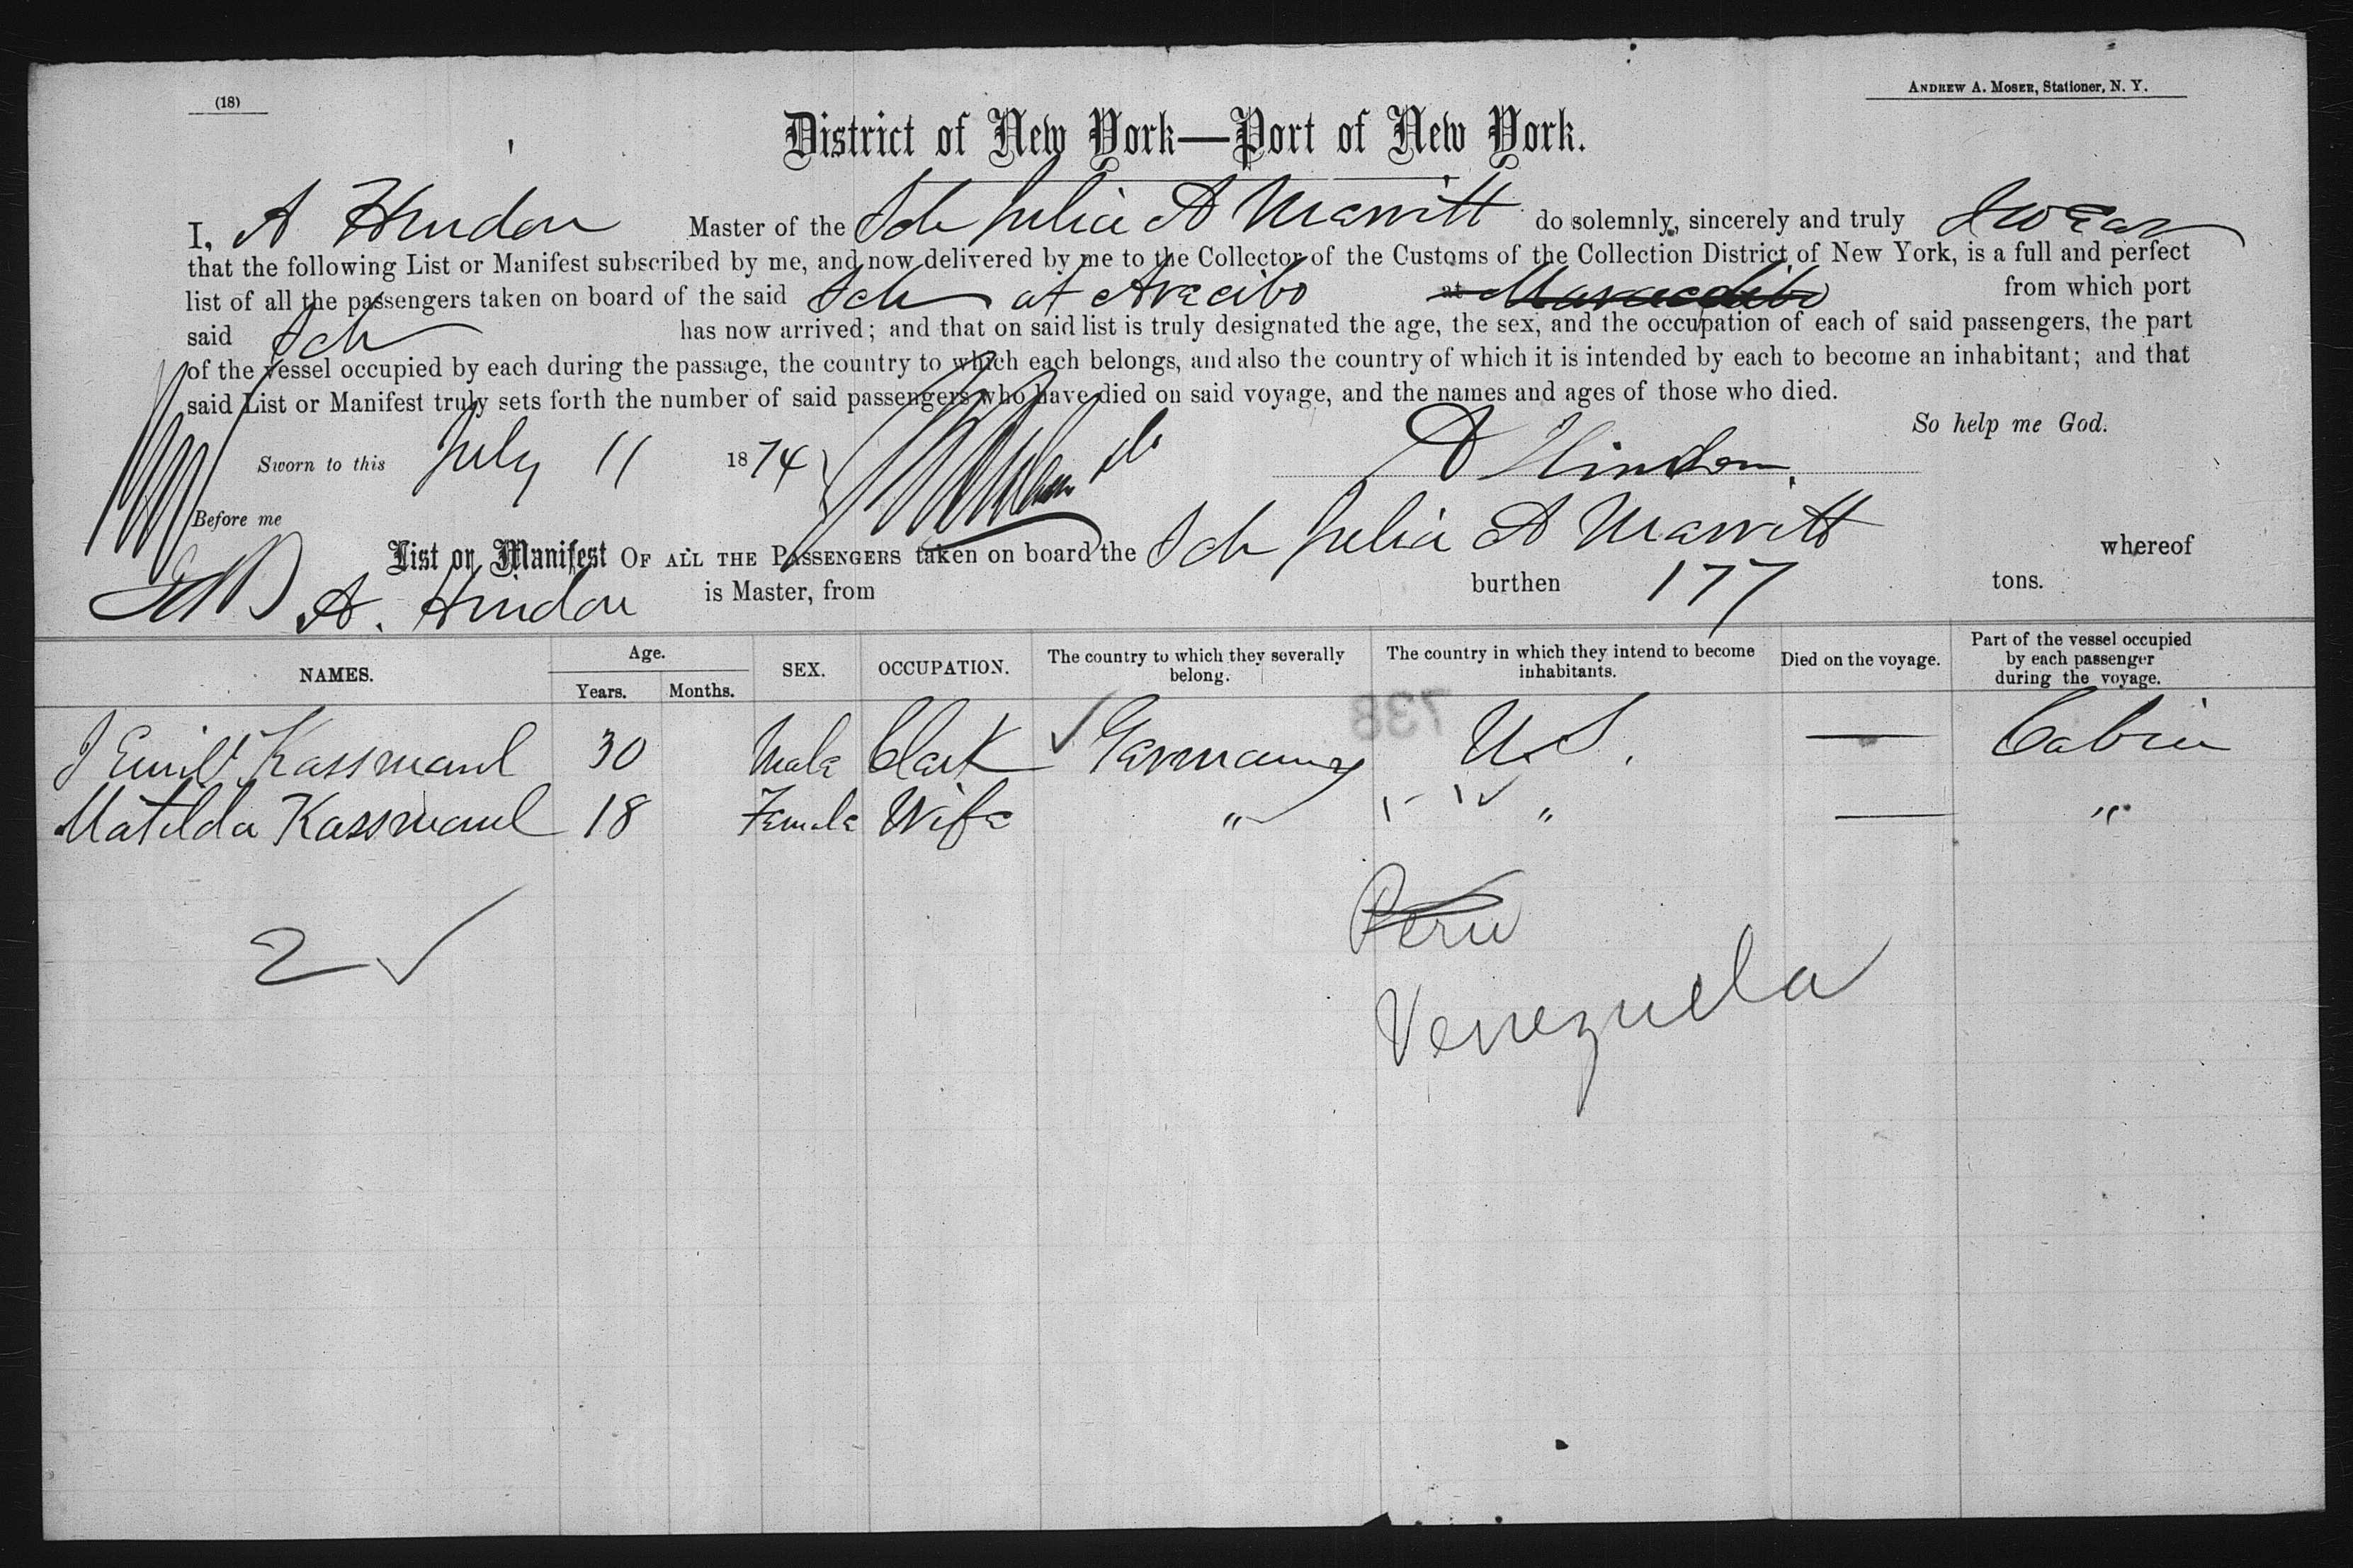 (18)
ANDREW A. MOSER, Stationer, N. Y.
District of New York—Port of New York.
I, A Hindon Master of the Sch Julia A Marritt do solemnly, sincerely and truly Swear
that the following List or Manifest subscribed by me, and now delivered by me to the Collector of the Customs of the Collection District of New York, is a full and perfect
list of all the passengers taken on board of the said Sch at Aracibo at Maracaibo from which port
said Sch has now arrived; and that on said list is truly designated the age, the sex, and the occupation of each of said passengers, the part
of the vessel occupied by each during the passage, the country to which each belongs, and also the country of which it is intended by each to become an inhabitant; and that
said List or Manifest truly sets forth the number of said passengers who have died on said voyage, and the names and ages of those who died.
So help me God.
Sworn to this July 11 1874 A Hindon
Before me
List or Manifest OF ALL THE PASSENGERS taken on board the Sch Julia A Marritt whereof
A. Hindon is Master, from burthen 177 tons.
NAMES. Age. Years. Months. SEX. OCCUPATION. The country to which they severally belong. The country in which they intend to become inhabitants. Died on the voyage. Part of the vessel occupied by each passenger during the voyage.
738
J Emil Kassmaul 30 Male Clark Germany U.S. — Cabin
Matilda Kassmaul 18 Female Wife " " — "
Peru
2
Venezuela